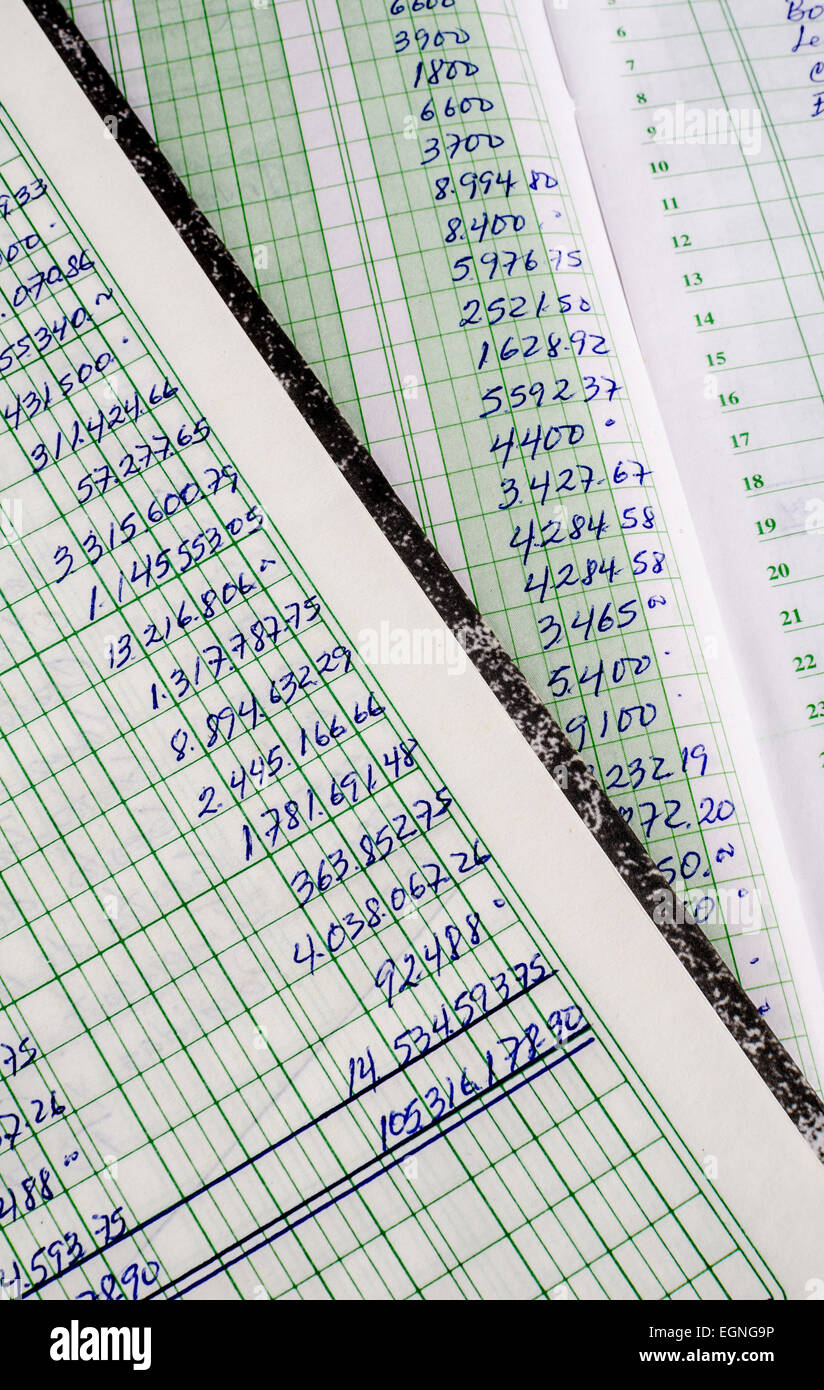 6600
3900
1800
6600
3700
8.994.80
8.400.
5.976 75
2521.50
1628.92
5.592 37
4400.
3.427.67
4.284.58
4284.58
3465 ~
5.400.
9100.
232 19
72.20
50.~
0.
Bo
Le
6
7
8
9
10
11
12
13
14
15
16
17
18
19
20
21
22
23
933
000.
.070.86
55340.~
431500.
311.424.66
57.277.65
3315600.79
1.145553.05
13.216.806.~
1.317.787.75
8.894.632.29
2.445.166.66
1781.691.48
363.85275
4.038.067.26
92488.
14 534.59375
105316.178.90
75
7.26
488 ~
4.593 75
78.90
alamy
Image ID: EGNG9P
www.alamy.com